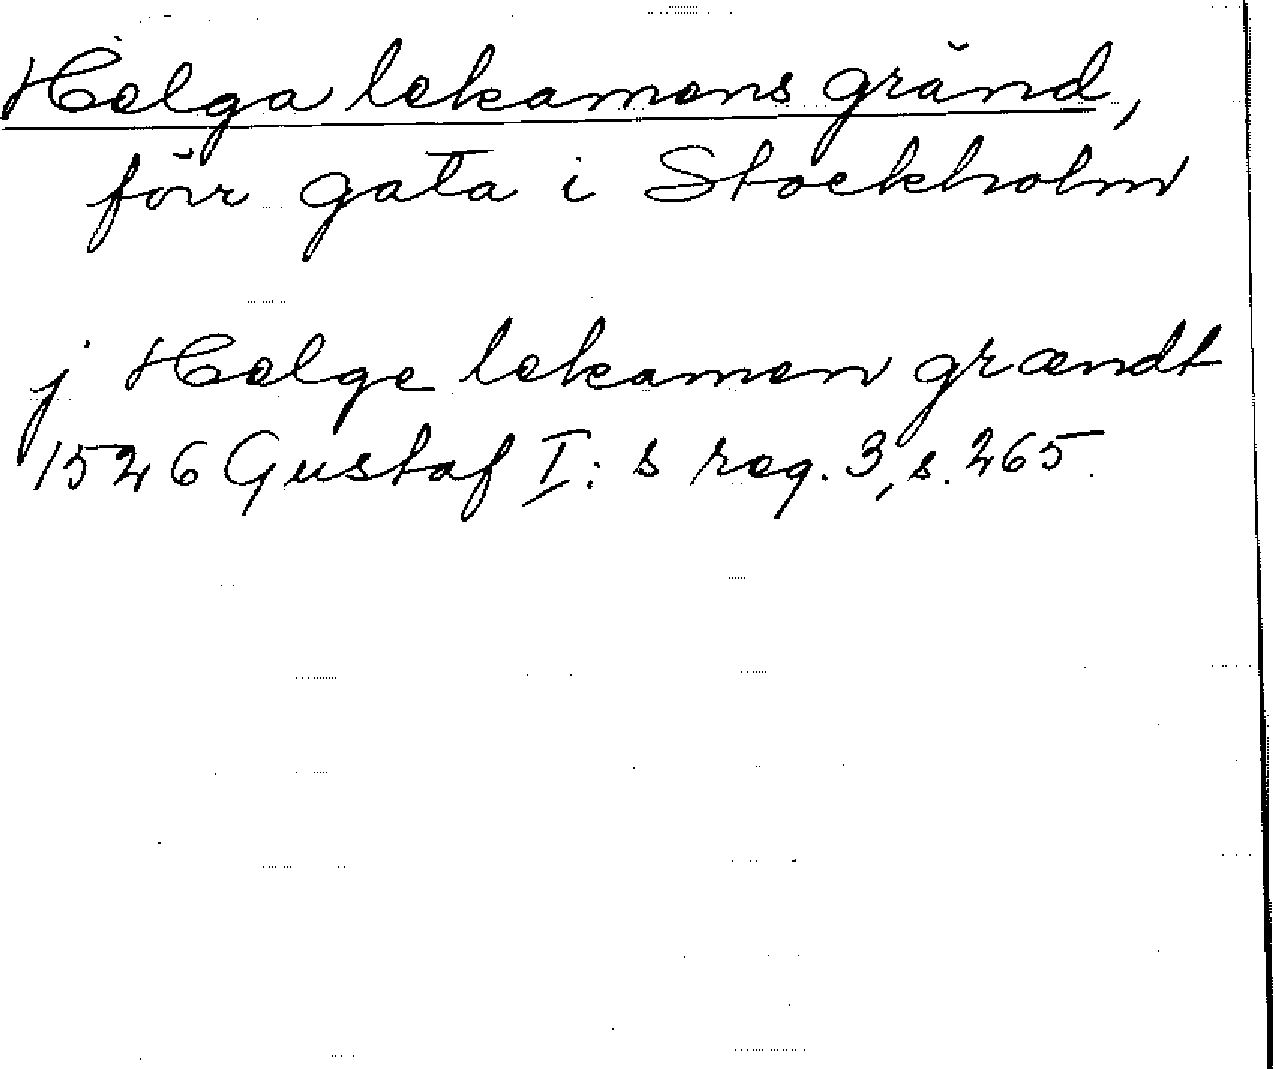 Helga lekamens gränd,
förr gata i Stockholm
j Helge lekamen grændt
1526 Gustaf I: s reg. 3, s. 265.